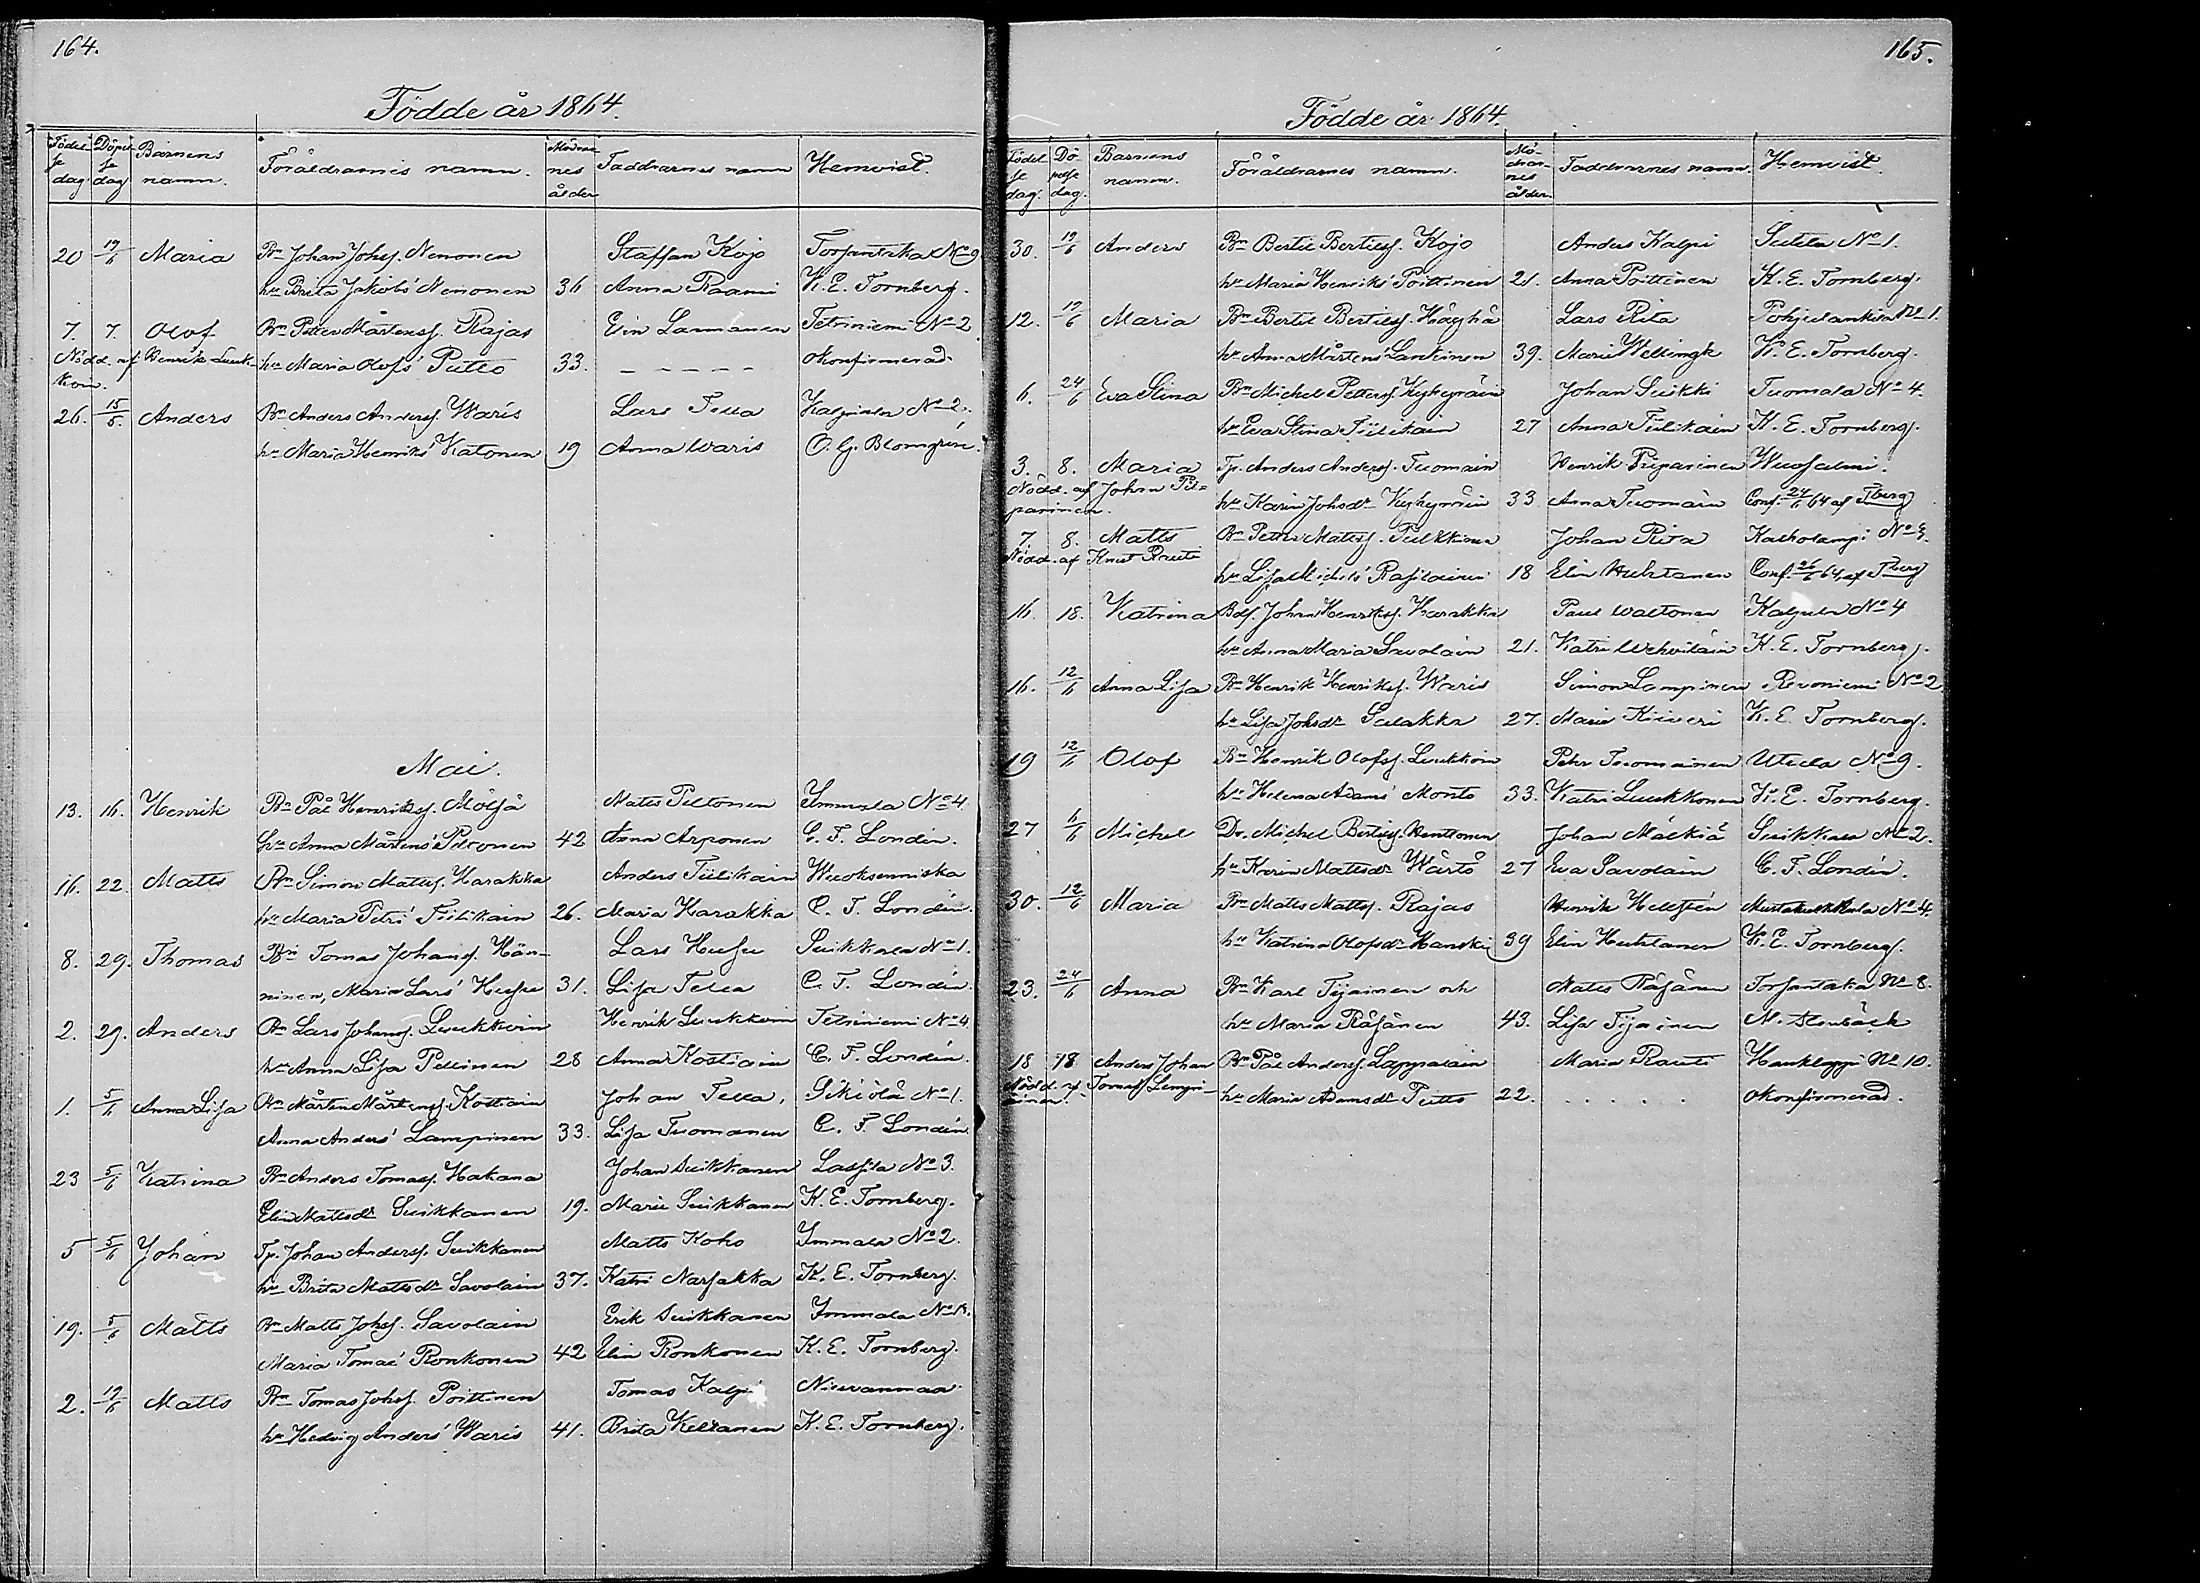 164.
Födde år 1864.
Födel- se dag Döpel- se dag Barnens namn. Föräldrarnes namn. Modrar- nes ålder Faddrarnes namn Hemvist.
20 19/6 Maria Bn Johan Johsf. Nenonen Staffan Kojo Torsantaka No 9
hu Brita Jakobs' Nenonen 36 Anna Raami K. E. Tornberg.
7. 7. Olof Bn Petter Mårtensf. Rajas Elin Lammanen Tetriniemi No 2
Nödd. af Henrik Luuk- hu Maria Olofs' Putto 33. - - - - - okonfirmerad.
koin.
26. 15/5. Anders Bn Anders Andersf. Waris Lars Tella Kalpiala No 2.
hu Maria Henriks' Katonen 19 Anna Waris O. G. Blomgrén.
Mai.
13. 16. Henrik Bn Pål Henriksf. Mölsä Matts Peltonen Immala No 4.
hu Anna Mårtens' Peltonen 42 Anna Arponen C. F. Londén.
16. 22. Matts Bn Simon Mattsf. Harakka Anders Tiilikain Wuoksenniska
hu Maria Petrs' Tiilikain 26. Maria Harakka C. F. Londén.
8. 29. Thomas Bn Tomas Johansf. Hän- Lars Husu Suikkala No 1.
ninen, Maria Lars' Husu 31. Lisa Tella C. F. Londén.
2. 29. Anders Bn Lars Johansf. Luukkoin Henrik Luukkoin Tetriniemi No 4
hu Anna Lisa Pellinen 28 Anna Kostiain C. F. Londén.
1. 5/6 Anna Lisa Bn Mårten Mårtensf. Kostiain Johan Tella, Sikiölä No 1.
Anna Anders' Lampinen 33. Lisa Tuomanen C. F. Londén.
23 5/6 Katrina Bn Anders Tomasf. Hakana Johan Suikkanen Lassila No 3.
Elin Mattsdr Suikkanen 19. Maria Suikkanen K. E. Tornberg.
5 5/6 Johan Tp. Johan Andersf. Suikkanen Matts Koho Immala No 2.
hu Brita Mattsdr Savolain 37. Katri Narsakka K. E. Tornberg.
19. 5/6 Matts Bn Matts Johsf. Savolain Erik Suikkanen Immala No 13.
Maria Tomas' Ronkonen 42 Elin Ronkonen K. E. Tornberg.
2. 19/6 Matts Bn Tomas Johsf. Poittinen Tomas Kalpi Niuvanmaa
hu Hedvig Anders' Waris 41. Brita Kekkanen K. E. Tornberg.
165.
Födde år 1864.
Födel- se dag. Dö- pelse dag. Barnens namn. Föräldrarnes namn. Mö- drar- nes ålder. Faddrarnes namn. Hemvist.
30. 19/6 Anders Bn Bertil Bertilsf. Kojo Anders Kalpi Sutela No 1.
hu Maria Henriks' Poittinen 21. Anna Poittinen K. E. Tornberg.
12. 19/6 Maria Bn Bertil Bertilsf. Häyhä Lars Rita Pohjalankila No 1.
hu Anna Mårtens' Lankinen 39. Maria Wellingk K. E. Tornberg.
6. 24/6 Eva Stina Bn Michel Pettersf. Kyhyräin Johan Suikki Tuomala No 4.
hu Eva Stina Tiilikain 27 Anna Tiilikain K. E. Tornberg.
3. 8. Maria Tp. Anders Andersf. Tuomain Henrik Piiparinen Wuosalmi.
Nödd. af Johan Pii- hu Karin Johsdr Kyhyräin 33 Anna Tuomain Conf. 24/6 64 af Tberg
parinen.
7. 8. Matts Bn Petter Mattsf. Pulkkinen Johan Rita Kaholampi No 4.
Nödd. af Knut Rautio hu Lisa Michels' Rasilainen 18 Elin Huhtanen Conf. 26/6 64, af Tberg
16. 18. Katrina Bdsf. Johan Henriksf. Harakka Paul Waltonen Kalpiala No 4
hu Anna Maria Savolain 21. Katri Wehviläin K. E. Tornberg.
16. 12/6 Anna Lisa Bn Henrik Henriksf. Waris Simon Lampinen Revoniemi No 2
hu Lisa Johsdr Sulakka 27. Maria Kiiveri K. E. Tornberg.
19 12/6 Olof Bn Henrik Olofsf. Luukkoin Petter Tuomainen Utula No 9.
hu Helena Adams' Monto 33. Katri Luukkonen K. E. Tornberg.
27 6/6 Michel Dr. Michel Bertilsf. Henttonen Johan Mälkiä Suikkala No 2.
hu Karin Mattsdr Wärtö 27 Eva Savolain C. F. Londén.
30. 12/6 Maria Bn Matts Mattsf. Rajas Henrik Hellstén No 4.
hu Katrina Olofsdr Hanski 39 Elin Huhtanen K. E. Tornberg.
23. 24/6 Anna Bn Karl Tijainen och Matts Räsänen Torsantaka No 8.
hu Maria Räsänen 43. Lisa Tijainen M. Alenbäck
18 18 Anders Johan Bn Pål Andersf. Lappalain Maria Rautio Haukloppi No 10.
Nödd. af Tomas Lempi- hu Maria Adamsdr Putto 22. . . . . . okonfirmerad.
äinen.